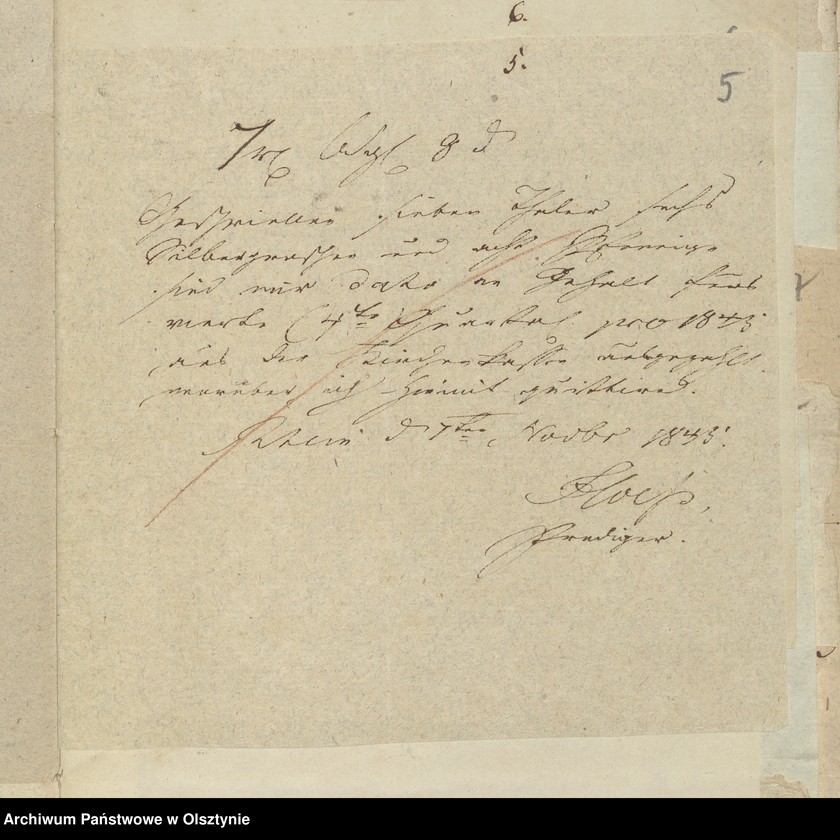 6.
5.
5
7 rx 6 Sgl 8 d
Geschrieben sieben Thaler sechs
Silbergroschen und acht Pfennige
sind mir dato an Gehalt fürs
vierte (4te) Quartal pro 1843
aus der Kirchen Kasse ausgezahlt,
worüber ich hiemit quittire.
Rhein d 7ten Novbr 1843.
Prediger.
Archiwum Państwowe w Olsztynie